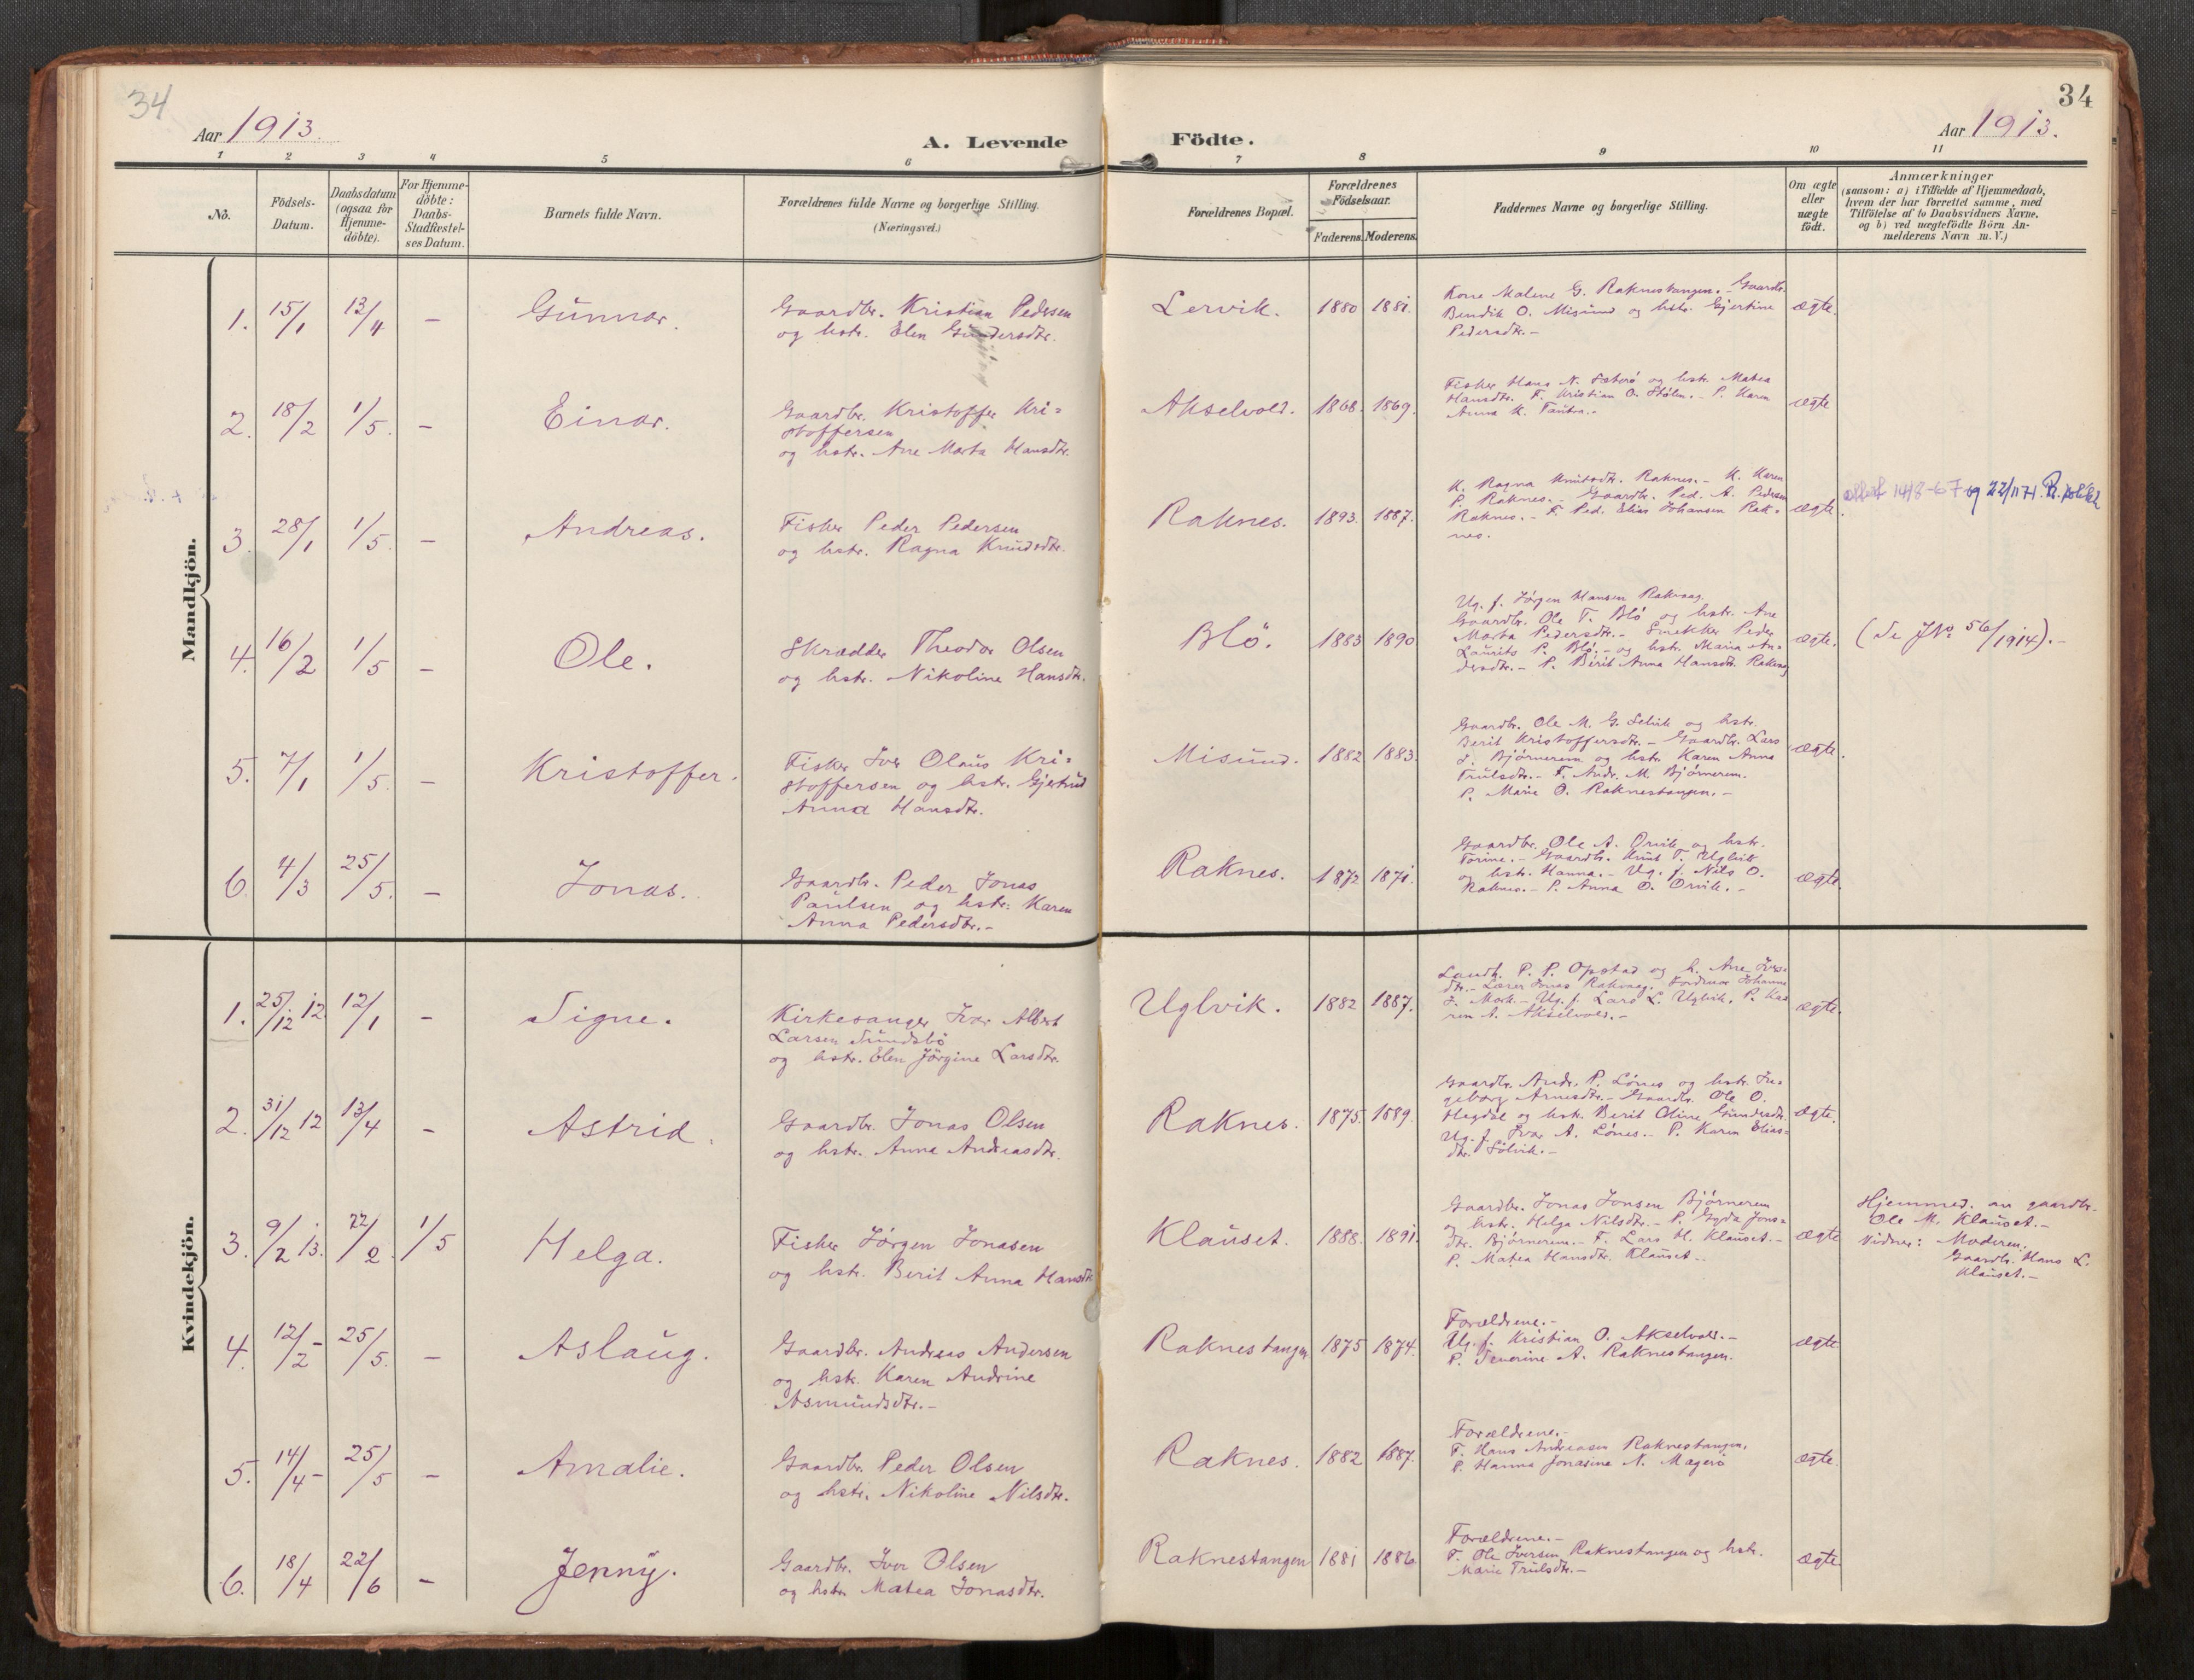 34
Aar 1913.
A. Levende
Födte.
34
Aar 1913.
1 2 3 4 5 6 7 8 9 10 11
No.
Födsels-
Datum.
Daabsdatum
(ogsaa for
Hjemme-
döbte).
For Hjemme-
döbte:
Daabs-
Stadfæstel-
ses Datum.
Barnets fulde Navn.
Forældrenes fulde Navne og borgerlige Stilling.
(Næringsvei.)
Forældrenes Bopæl.
Forældrenes
Födselsaar.
Faderens. Moderens.
Faddernes Navne og borgerlige Stilling.
Om ægte
eller
uægte
födt.
Anmærkninger
(saasom: a) i Tilfælde af Hjemmedaab,
hvem der har forrettet samme, med
Tilföielse af to Daabsvidners Navne,
og b) ved uægtefödte Börn An-
melderens Navn m. V.)
Mandkjön.
1. 15/1 13/4 - Gunnar.
Gaardbr. Kristian Pedersen
og hstr. Elen Gundersdtr.
Lervik. 1880 1881.
Kone Malene G. Raknestangen. - Gaardb.
Bendik O. Misund og hstr. Gjertine
Pedersdtr. -
ægte.
2. 18/2 1/5. - Einar.
Gaardbr. Kristoffer Kri=
stoffersen
og hstr. Ane Marta Hansdtr.
Akselvold. 1868. 1869.
Fisker Hans N. Sæterö og hstr. Matea
Hansdtr. F. Kristian O. Stölen. - P. Karen
Anna K. Tautra. -
ægte
3. 28/1 1/5. - Andreas.
Fisker Peder Pedersen
og hstr. Ragna Knudsdtr.
Raknes. 1893. 1887.
K. Ragna Knutsdtr. Raknes. - K. Karen
P. Raknes. - Gaardbr. Ped. A. Pedersen
Raknes. - F. Ped. Elias Johansen Rak=
nes.
ægte.
14/8-67 og 22/11 71.
4. 16/2 1/5 - Ole.
Skrædder Theodor Olsen
og hstr. Nikoline Hansdtr.
Blö. 1883 1890
Ug. f. Jörgen Hansen Rakvaag.
Gaardbr. Ole T. Blö og hstr. Ane
Marta Pedersdtr. - Snekker Peder
Laurits P. Blö. - og hstr. Maria An=
dersdtr. - P. Berit Anna Hansdtr. Rakvag
ægte.
(Se J№ 56/1914). -
5. 7/1 1/5. - Kristoffer.
Fisker Iver Olaus Kri=
stoffersen og hstr. Gjertrud
Anna Hansdtr.
Misund. 1882 1883.
Gaardbr. Ole M. G. Selvik og hstr.
Berit Kristoffersdtr. - Gaardbr. Lars
J. Björnerem og hstr. Karen Anna
Trulsdtr. - F. Andr. M. Björnerem.
P. Marie O. Raknestangen. -
ægte.
6. 4/3 25/5. - Jonas.
Gaardb. Peder Jonas
Paulsen og hstr: Karen
Anna Pedersdtr. -
Raknes. 1872 1871.
Gaardbr. Ole A. Orvik og hstr.
Torine. - Gaardb. Knut T. Uglvik
og hstr. Hanna. - Ug. f. Nils O.
Raknes. - P. Anna O. Orvik. -
ægte.
Kvindekjön.
1. 25/12 12 12/1 - Signe.
Kirkesanger Ivar Albert
Larsen Sundsbö
og hstr. Elen Jörgine Larsdtr.
Uglvik. 1882 1887.
Landh. P. P. Opstad og h. Ane Ivers=
dtr. - Læser Jonas Rakvaag. Fordman Johannes
J. Mork - Ug. f. Lars L. Uglvik. P. Ka=
ren A. Akselvold. -
ægte.
2. 31/12 12 13/4 - Astrid.
Gaardbr. Jonas Olsen
og hstr. Anna Andreasdtr.
Raknes. 1875. 1889.
Gaardbr. Andr. P. Lönes og hstr. In=
geborg Arnesdtr. - Gaardbr. Ole O.
Hegdal og hstr. Berit Oline Gundersdtr.
Ug. f. Ivar A. Lönes. - P. Karen Elias=
dtr. Sölvik. -
ægte.
3. 9/2 13. 22/2. 1/5 Helga.
Fisker Jörgen Jonasen
og hstr. Berit Anna Hansdtr
Klauset. 1888. 1891.
Gaardbr. Jonas Jonsen Björnerem
og hstr. Helga Nilsdtr. - P. Gyda Jons=
dtr. Björnerem. - F. Lars H. Klauset. -
P. Matea Hansdtr. Klauset -
ægte
Hjemmed. av gaardbr.
Ole M. Klauset. -
Vidner: Moderen.
Gaardbr. Hans L.
Klauset. -
4. 12/2 - 25/5. - Aslaug.
Gaardbr. Andreas Andersen
og hstr. Karen Andrine
Asmundsdtr. -
Raknestangen 1875 1874.
Forældrene. -
Ug. f. Kristian O. Akselvold. -
P. Severine A. Raknestangen.
ægte.
5. 14/4 - 25/5 - Amalie.
Gaardbr. Peder Olsen
og hstr. Nikoline Nilsdtr.
Raknes. 1882 1887.
Forældrene. -
F. Hans Andreasen Raknestangen.
P. Hanna Jonasine N. Magerö
ægte.
6. 18/4 22/6 - Jenny.
Gaardbr. Iver Olsen
og hstr. Matea Jonasdtr.
Raknestangen 1881 1886
Forældrene. -
F. Ole Iversen Raknestangen og hstr.
Marie Trulsdtr. -
ægte